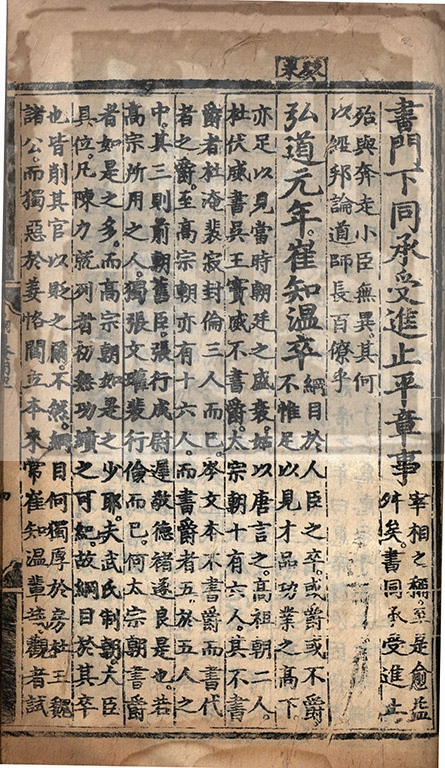 書門下同承受進止平章事
宰相之稱。至是愈益
舛矣。書同承受進止
殆與奔走小臣無異其何
以經邦論道師長百僚乎
弘道元年。崔知溫卒
綱目於人臣之卒。或爵或不爵。
不惟足以見才品功業之高下
亦足以見當時朝廷之盛衰。姑以唐言之。高祖朝二人。
杜伏威書吳王。竇威不書爵。太宗朝十有六人。其不書
爵者杜淹裴寂封倫三人而已。岑文本不書爵而書代
者之爵。至高宗朝亦有十六人。而書爵者五。於五人之
中。其三則前朝舊臣。張行成尉遲敬德褚遂良是也。若
高宗所用之人。獨張文瓘裴行儉而已。何太宗朝書爵
者如是之多。而高宗朝如是之少耶。夫武氏制朝。大臣
具位。凡陳力就列者初無功績之可紀。故綱目於其卒
也皆削其官以貶之爾。不然。綱目何獨厚於房杜王魏
諸公。而獨惡於姜恪閻立本來常崔知溫輩哉觀者試